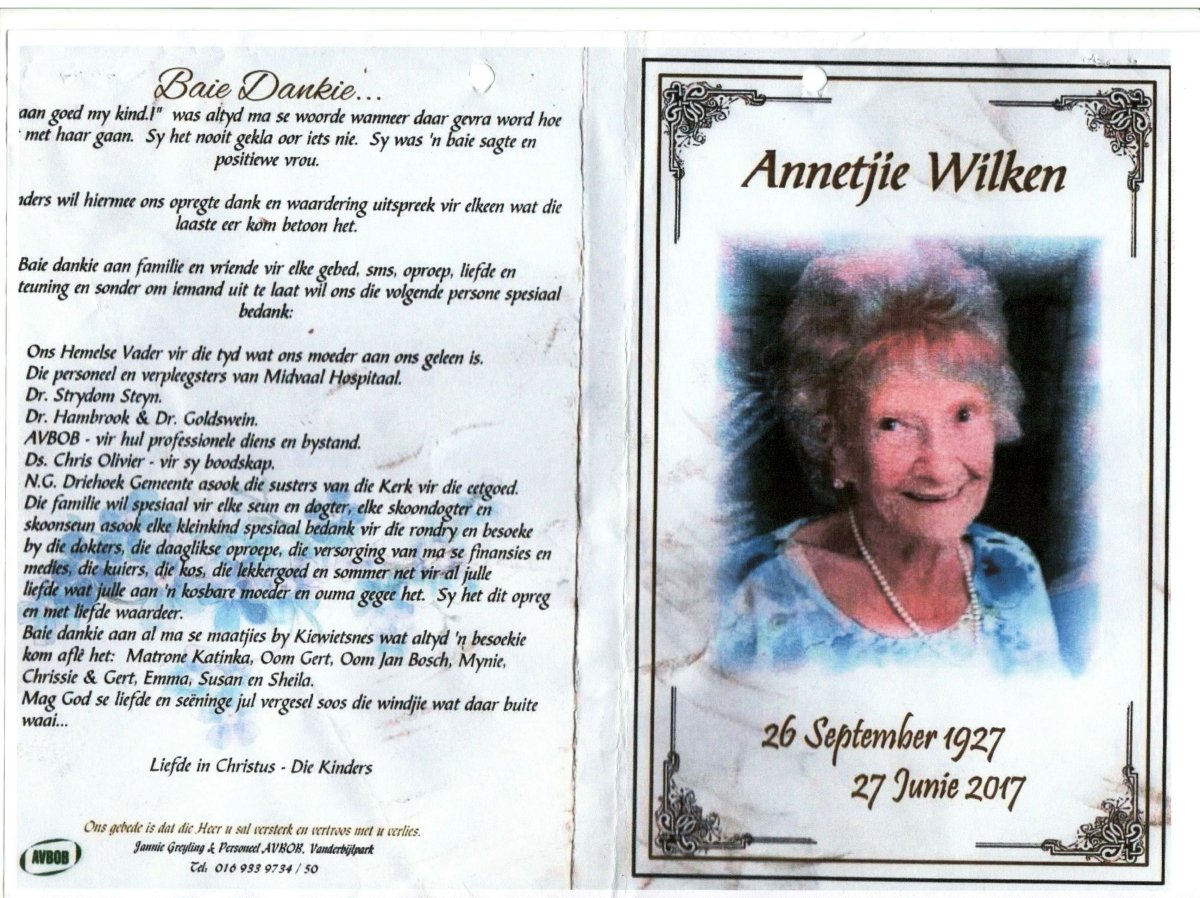 Baie Dankie...
aan goed my kind.!" was altyd ma se woorde wanneer daar gevra word hoe
met haar gaan. Sy het nooit gekla oor iets nie. Sy was 'n baie sagte en
positiewe vrou.
nders wil hiermee ons opregte dank en waardering uitspreek vir elkeen wat die
laaste eer kom betoon het.
Baie dankie aan familie en vriende vir elke gebed, sms, oproep, liefde en
teuning en sonder om iemand uit te laat wil ons die volgende persone spesiaal
bedank:
Ons Hemelse Vader vir die tyd wat ons moeder aan ons geleen is.
Die personeel en verpleegsters van Midvaal Hospitaal.
Dr. Strydom Steyn.
Dr. Hambrook & Dr. Goldswein.
AVBOB - vir hul professionele diens en bystand.
Ds. Chris Olivier - vir sy boodskap.
N.G. Driehoek Gemeente asook die susters van die Kerk vir die eetgoed.
Die familie wil spesiaal vir elke seun en dogter, elke skoondogter en
skoonseun asook elke kleinkind spesiaal bedank vir die rondry en besoeke
by die dokters, die daaglikse oproepe, die versorging van ma se finansies en
medies, die kuiers, die kos, die lekkergoed en sommer net vir al julle
liefde wat julle aan 'n kosbare moeder en ouma gegee het. Sy het dit opreg
en met liefde waardeer.
Baie dankie aan al ma se maatjies by Kiewietsnes wat altyd 'n besoekie
kom aflê het: Matrone Katinka, Oom Gert, Oom Jan Bosch, Mynie,
Chrissie & Gert, Emma, Susan en Sheila.
Mag God se liefde en seëninge jul vergesel soos die windjie wat daar buite
waai...
Liefde in Christus - Die Kinders
Ons gebede is dat die Heer u sal versterk en vertroos met u verlies.
Jannie Greyling & Personeel AVBOB, Vanderbijlpark
Tel: 016 933 9734 / 50
AVBOB
Annetjie Wilken
26 September 1927
27 Junie 2017